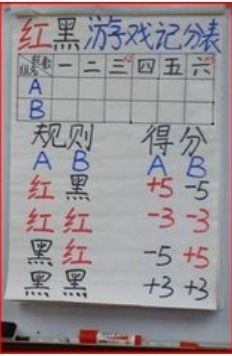 红黑游戏记分表
轮数 组名 一 二 三 四 五 六
A
B
规则 得分
A B A B
红 黑 +5 -5
红 红 -3 -3
黑 红 -5 +5
黑 黑 +3 +3